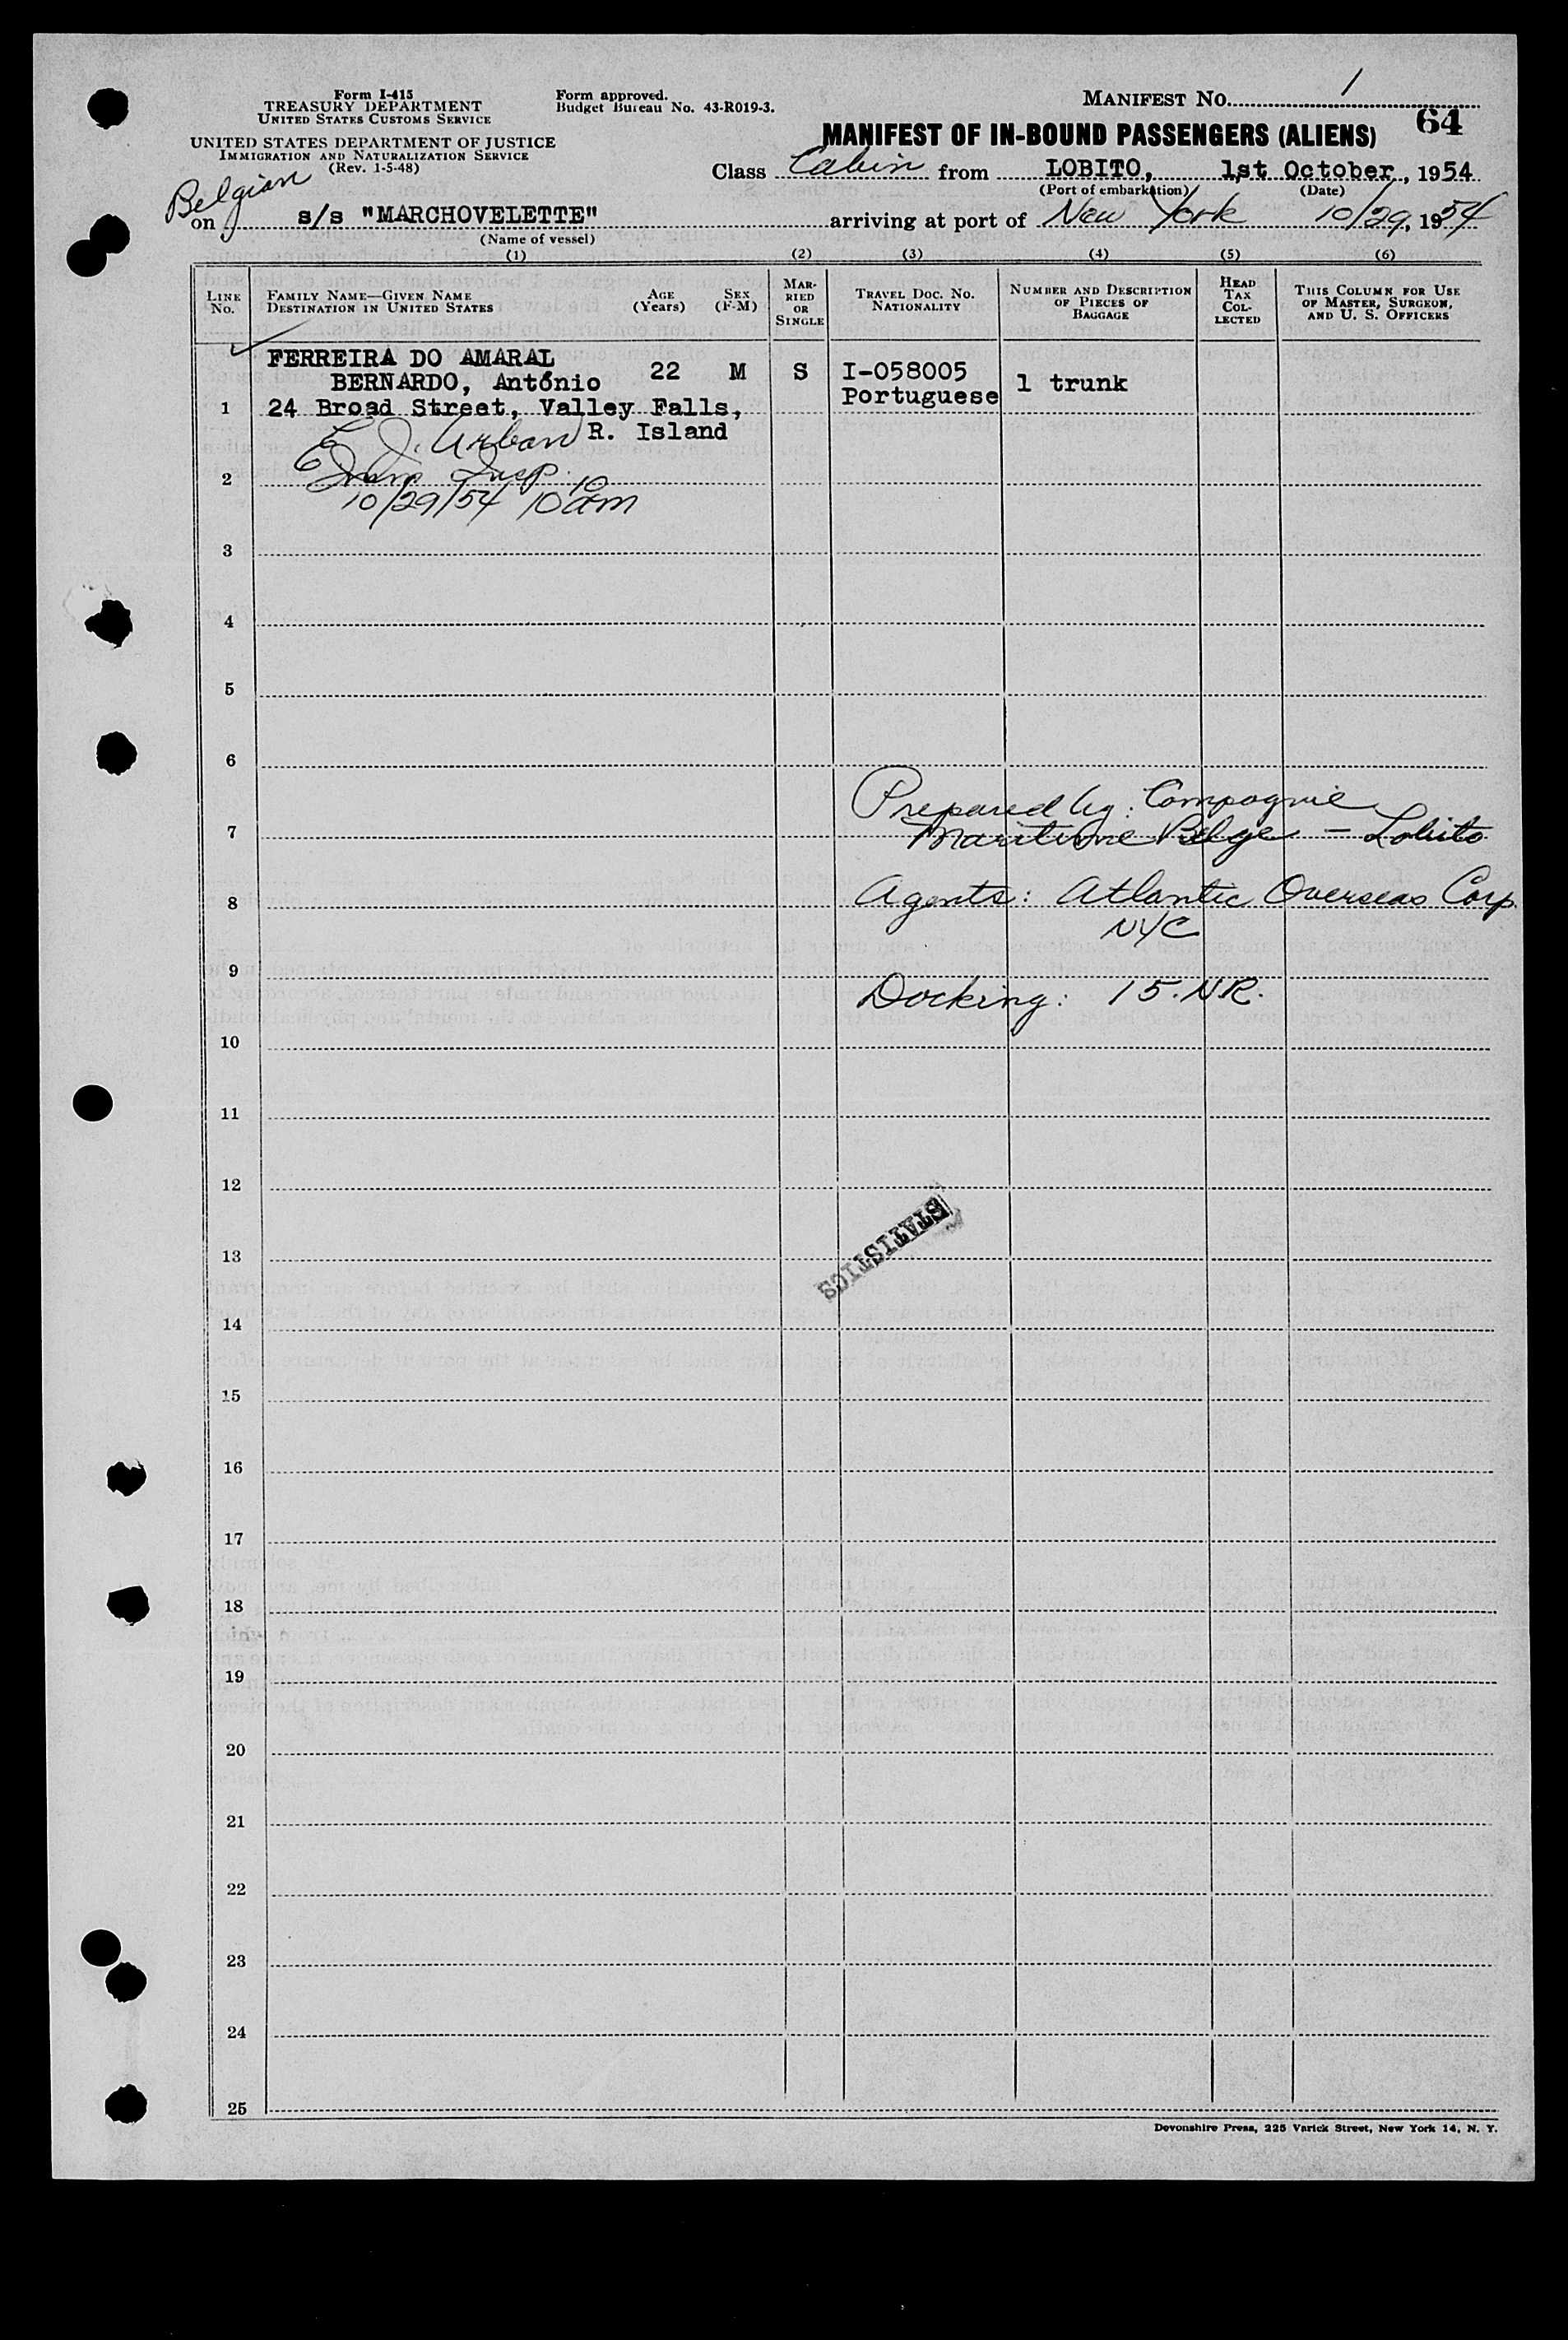 Form I-415
TREASURY DEPARTMENT
UNITED STATES CUSTOMS SERVICE
UNITED STATES DEPARTMENT OF JUSTICE
IMMIGRATION AND NATURALIZATION SERVICE
(Rev. 1-5-48)
Form approved.
Budget Bureau No. 43-R019-3.
MANIFEST No. 1
64
MANIFEST OF IN-BOUND PASSENGERS (ALIENS)
Class Cabin from LOBITO, 1st October, 1954
(Port of embarkation) (Date)
Belgian
on s/s "MARCHOVELETTE" arriving at port of New York 10/29, 1954
(Name of vessel)
(1) (2) (3) (4) (5) (6)
LINE No. FAMILY NAME—GIVEN NAME DESTINATION IN UNITED STATES AGE (Years) SEX (F-M) MARRIED OR SINGLE TRAVEL DOC. NO. NATIONALITY NUMBER AND DESCRIPTION OF PIECES OF BAGGAGE HEAD TAX COLLECTED THIS COLUMN FOR USE OF MASTER, SURGEON, AND U. S. OFFICERS
FERREIRA DO AMARAL
BERNARDO, António 22 M S I-058005 Portuguese 1 trunk
1 24 Broad Street, Valley Falls,
R. Island
E J. Urban
2 Imm Insp.
10/29/54 10 10 am
3
4
5
6
Prepared by: Compagnie
7 Maritime Belge – Lobito
8 Agents: Atlantic Overseas Corp.
NYC
9
Docking: 15. N.R.
10
11
12
STATISTICS
13
14
15
16
17
18
19
20
21
22
23
24
25
Devonshire Press, 225 Varick Street, New York 14, N. Y.